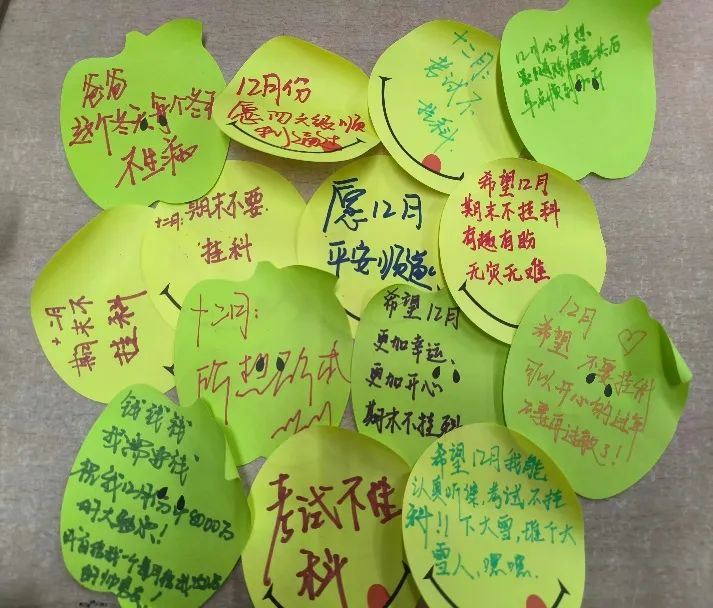 爸爸
这个冬天每个冬天
不生病
12月份
愿四六级顺
利通过
十二月:
考试不
挂科.
12月份
十二月:期末不要
挂科
愿12月
平安顺遂。
希望12月
期末不挂科
有趣有盼
无灾无难
十二月
期末不
挂科
十二月:
所想所求
希望12月
更加幸运、
更加开心
期末不挂科
12月
希望 不要挂科
可以开心的过年
不要再过敏了!
钱钱钱
我需要钱
祝我12月份中8000万
的大
考试不挂
科
希望12月我能
认真听课,考试不挂
科!! 下大雪,堆个大
雪人,嘿嘿.